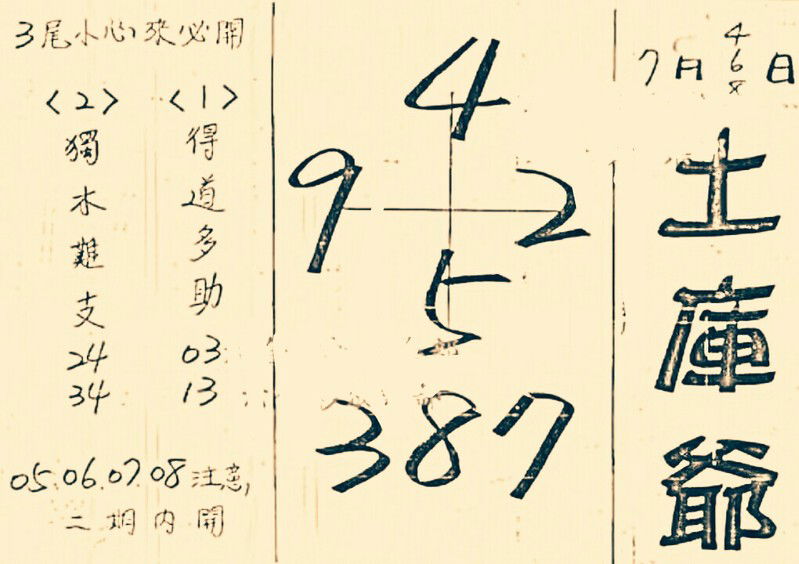 7月 4 6 8 日
土庫爺
4
9 2
5
387
3尾小心來必開
<1>
得道多助
03
13
<2>
獨木難支
24
34
05.06.07.08注意,
二期內開